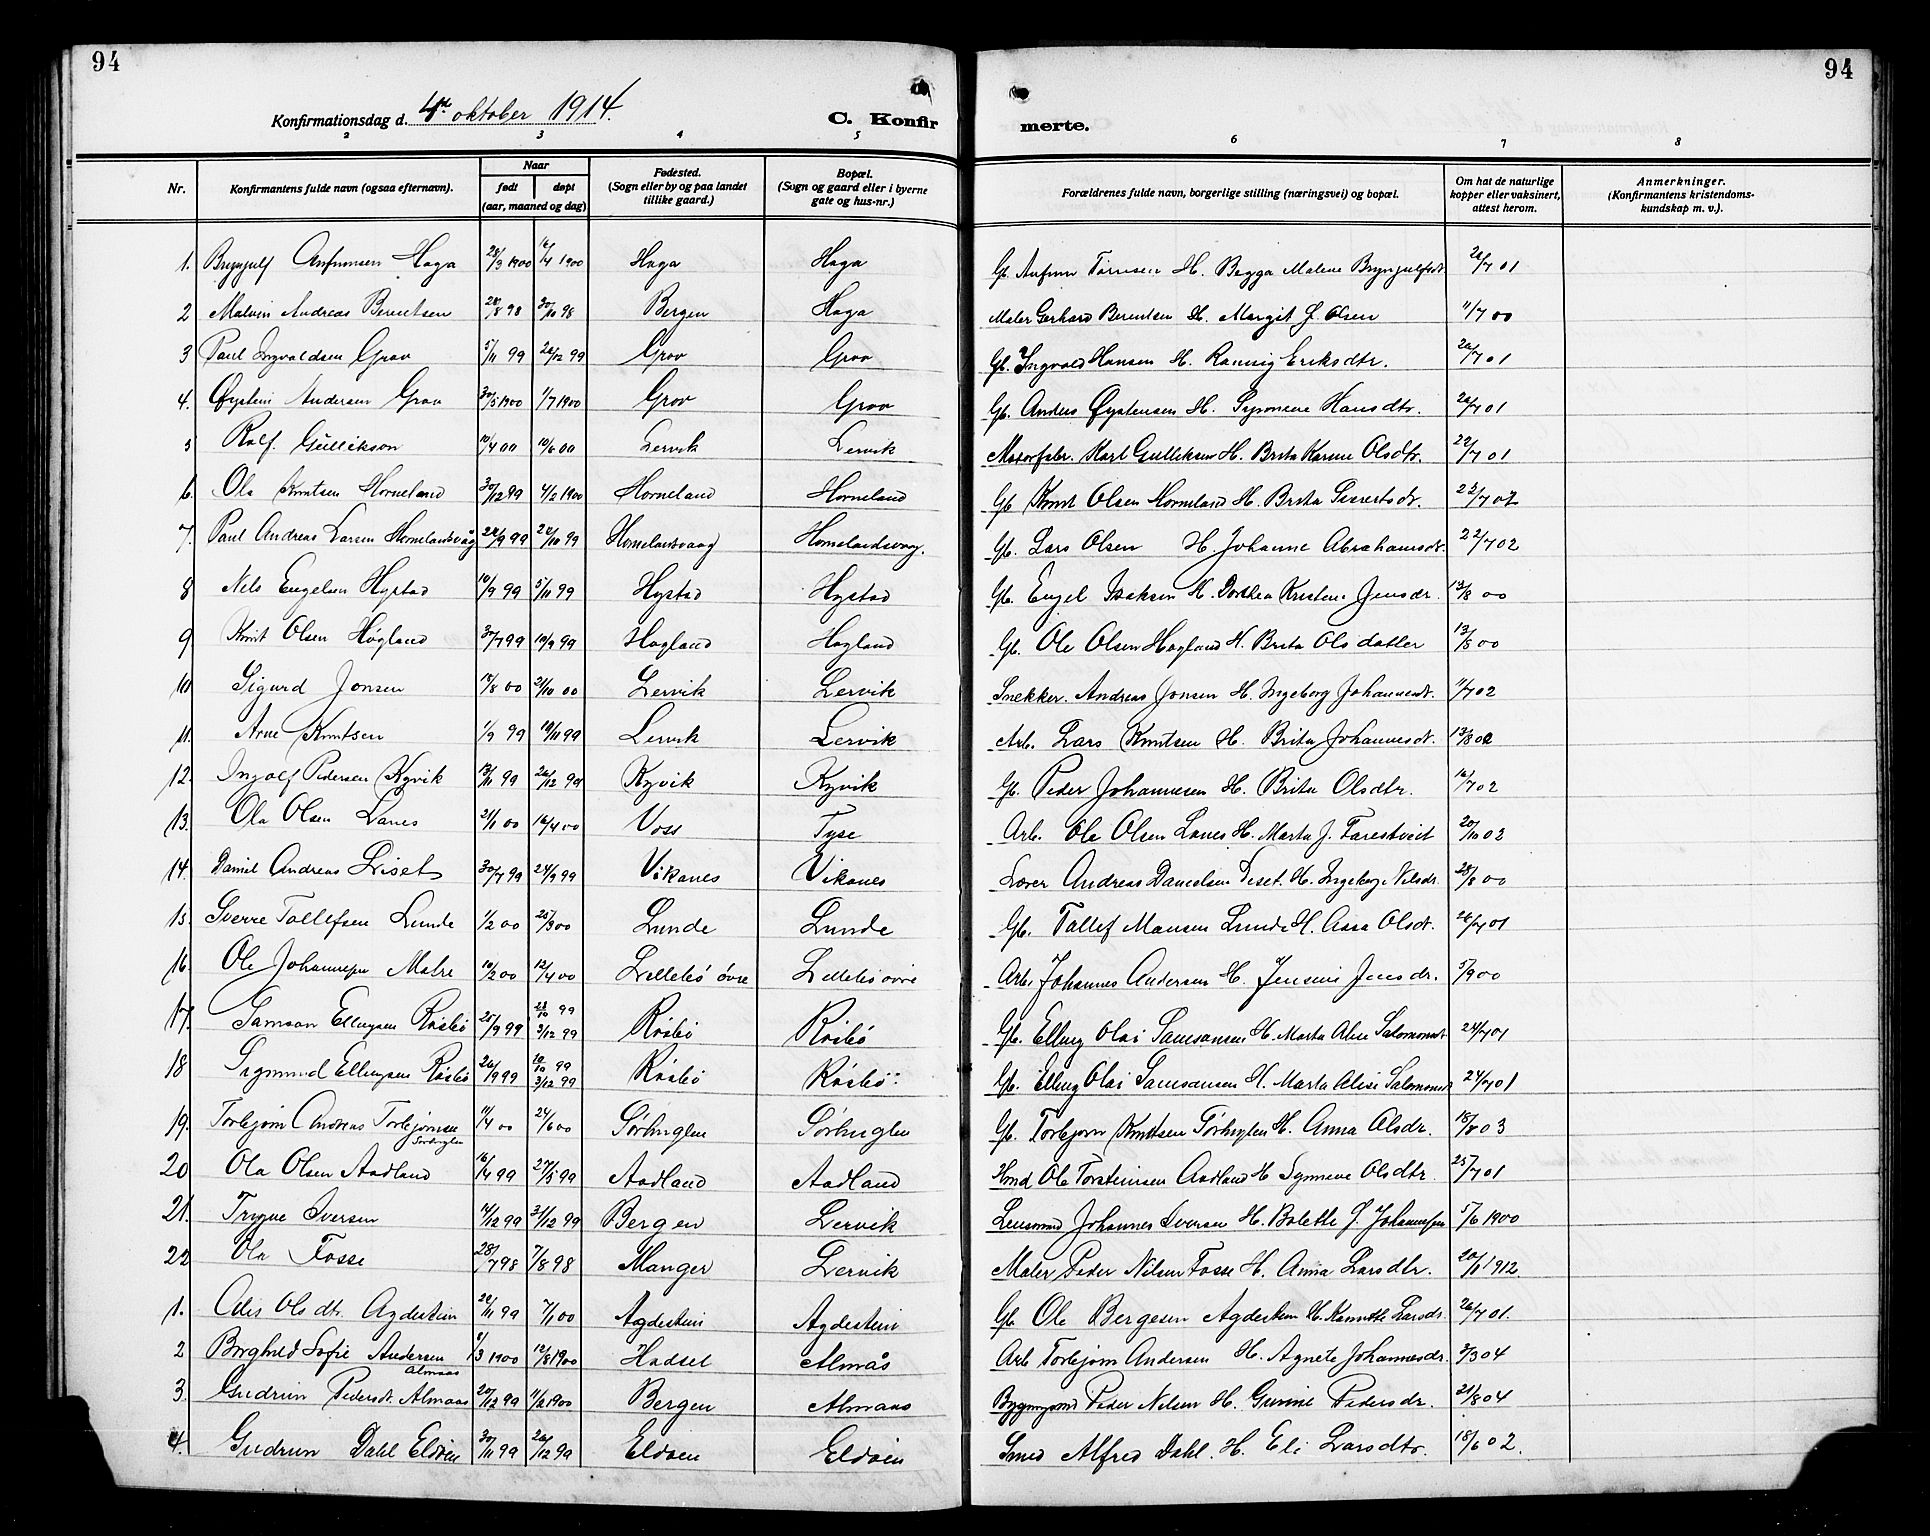 94
94
Konfirmationsdag d. 4de oktober 1914.
C. Konfir
merte.
2 3 4 5 6 7 8
Nr. Konfirmantens fulde navn (ogsaa efternavn). Naar født døpt (aar, maaned og dag) Fødested. (Sogn eller by og paa landet tillike gaard.) Bopæl. (Sogn og gaard eller i byerne gate og hus-nr.) Forældrenes fulde navn, borgerlige stilling (næringsvei) og bopæl. Om hat de naturlige kopper eller vaksinert, attest herom. Anmerkninger. (Konfirmantens kristendomskundskap m. v.).
1. Brynjulf Haga 28/3 1900 16/4 1900 Haga Haga Gb. H. Malene Brynjulfsdt 26/7 01
2 Malvin Andreas Berentsen 28/8 98 30/10 98 Bergen Haga Maler Gerhard Berentsen H. Margit J. Olsen 11/7 00
3 Paul Ingvaldsen Grov 5/11 99 26/12 99 Grov Grov Gb. Ingvald Hansen H. Eriksdtr. 26/7 01
4. Øystein Andersen Grov 30/5 1900 1/7 1900 Grov Grov Gb. Anders Øystensen H. Hansdtr. 26/7 01
5 Rolf Gullikson 10/4 00 10/6 00 Lervik Lervik Karl Gulliksen H. Brita Karine Olsdtr. 22/7 01
6. Ola Knutsen Horneland 30/12 99 4/2 1900 Horneland Horneland Gb Knut Olsen Horneland H. Brita Sivertsdt. 23/7 02
7. Paul Andreas Larsen Hornelandsvåg 22/9 99 22/10 99 Hornelandsvaag Hornelandsvag. Gb. Lars Olsen H. Johanne Abrahamsdt. 22/7 02
8 Nils Engelsen Hystad 10/9 99 5/11 99 Hystad Hystad Gb. Engel Isaksen H. Dorthea Kristine Jensdr. 13/8 00
9 Knut Olsen Høgland 30/7 99 10/9 99 Hagland Hagland Gb. Ole Olsen Hagland H. Brita Olsdatter 13/8 00
10 Sigurd Jonsen 12/8 00 21/10 00 Lervik Lervik Snekker. Andreas Jonsen H. Ingeborg Johannesdt. 11/7 02
11. Arne Knutsen 1/9 99 19/11 99 Lervik Lervik Arb. Lars Knutsen H. Brita Johannesdt. 13/8 02
12. Ingolf Pedersen Kyvik 13/11 99 26/12 99 Kyvik Kyvik Gb. Peder Johannesen H. Brita Olsdtr. 16/7 02
13. Ola Olsen Lanes 21/1 00 16/4 00 Voss Tyse Arb. Ole Olsen Lanes H. Marta J. Farestveit 20/10 03
14. Daniel Andreas Liset 30/7 99 24/9 99 Vikanes Vikanes Lærer Andreas Danielsen Liset. H. Ingeborg Nilsdr. 28/8 00
15. Sverre Tollefsen Lunde 1/2 00 25/3 00 Lunde Lunde Gb. Tallef Mansen Lunde H. Olsdt. 26/7 01
16. Ole Johannesen Malre 10/2 00 12/4 00 Lillebø øvre Lillebø øvre Arb. Johannes Andersen H. Jensine Jensdr. 5/9 00
17. Samson Ellingsen Røsbø 25/9 99 3/12 99 Røsbø Røsbø Gb. Elling Olai Samsonsen H. Marta Alise Salomonsdt 24/7 01
18 Sigmund Ellingsen Røsbø 99 3/12 99 Røsbø Røsbø Gb. Elling Olai Samsonsen H. Marta Alise Salomonsdt 24/7 01
19. Torbjørn Andreas Torbjørnsen Sørhuglen 11/4 00 24/6 00 Sørhuglen Sørhuglen Gb. Torbjørn Knutsen Sørhuglen H. Anna Olsdr. 18/8 03
20 Ola Olsen Aadland 16/4 99 27/5 99 Aadland Aadland Hmd Ole Torsteinsen Aadland H Synneve Olsdtr. 25/7 01
21. Trygve Iversen 14/12 99 31/12 99 Bergen Lervik Lensmand Johannes Iversen H. Bolette J. Johannesen 5/6 1900
22 Ola Fosse 28/7 98 7/8 98 Manger Lervik Maler Peder Nilsen Fosse H. Anna Larsdtr. 20/1 1912
1. Olsdtr. Agdestein 22/11 99 7/1 00 Agdestein Agdestein Gb. Ole Bergesen Agdestein H. Larsdr. 26/7 01.
2 Borghild Sofie Andersen Almaas 8/3 1900 12/8 1900 Hadsel Almås Arb Torbjørn Andersen H. Agnete Johannesdr. 3/3 04
3. Gudrun Pedersdt. Almaas 20/12 99 11/2 1900 Bergen Almaas Peder Nilsen H. Gurine Pedersdr. 21/8 04
4. Gudrun Dahl Eldøen 30/11 99 26/12 99 Eldøen Eldøen Smed Alfred Dahl. H. Eli Larsdtr. 18/6 02.